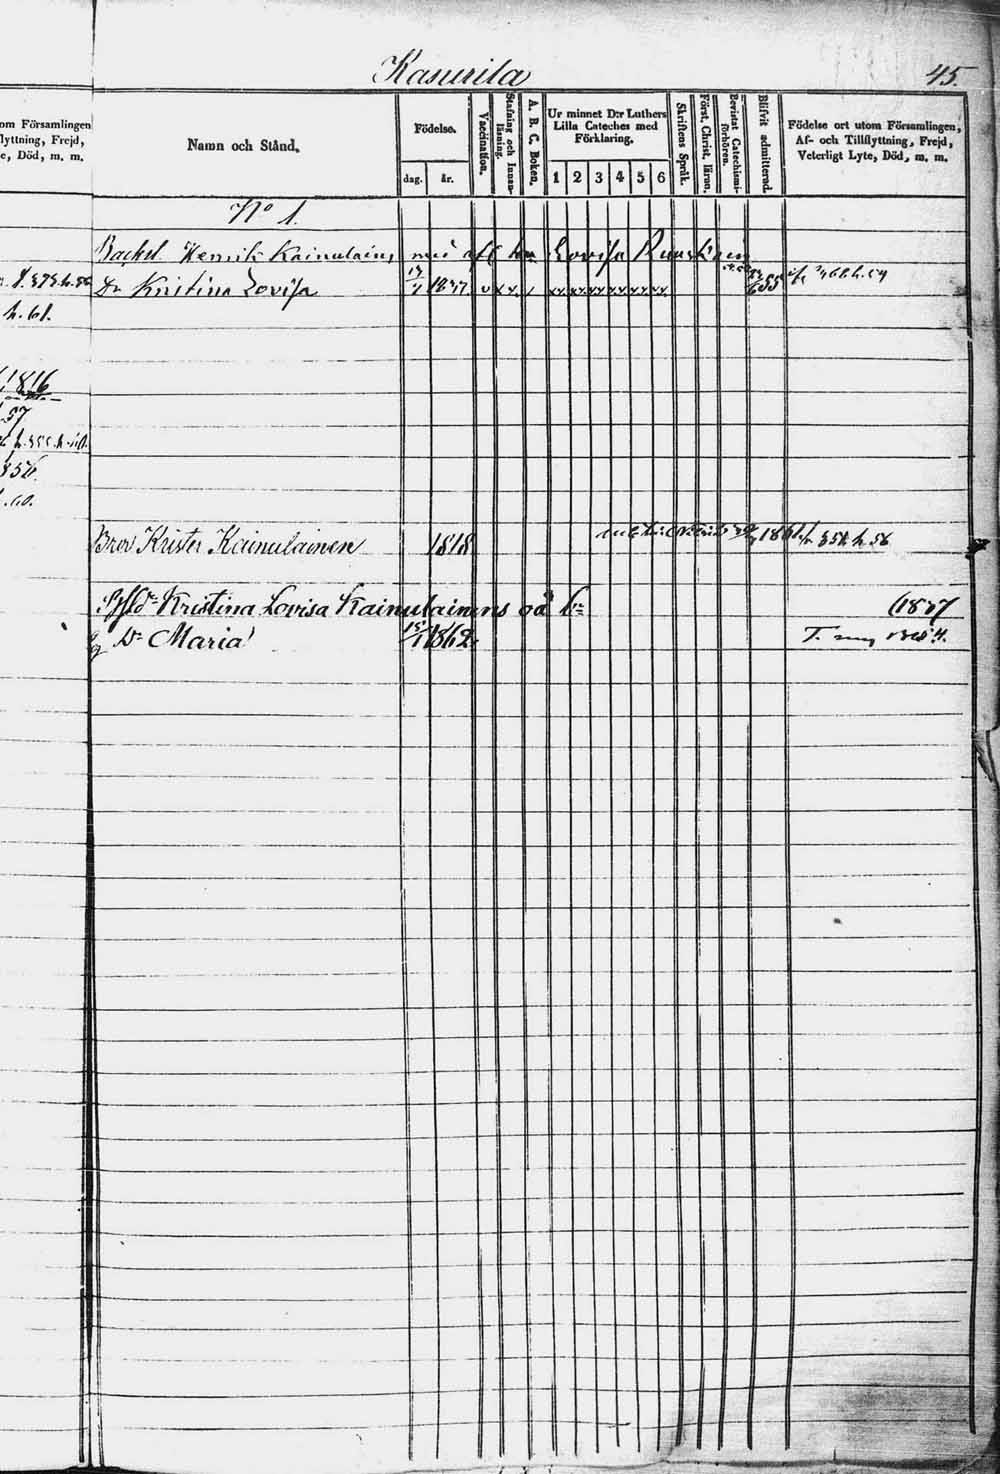 Kasurila
45.
om Församlingen
flyttning, Frejd,
e, Död, m. m.
Namn och Stånd.
Födelse.
dag. år.
Vaccination.
Stafning och Innan-
läsning.
A. B. C. Boken.
Ur minnet D:r Luthers
Lilla Cateches med
Förklaring.
1 2 3 4 5 6
Skriftens Språk.
Först. Christ. läran.
Bevistat Catechismi-
förhören.
Blifvit admitterad.
Födelse ort utom Församlingen,
Af- och Tillflyttning, Frejd,
Veterligt Lyte, Död, m. m.
No 1.
Henrik Kainulains med afl Lovisa
Dr Kristina Lovisa 1837
h. 61.
1816
57
Bror Krister Kainulainen 1818 1861 h. 56
Kristina Lovisa Kainulainens oä b:n (1837
Dr Maria 15/1 1862